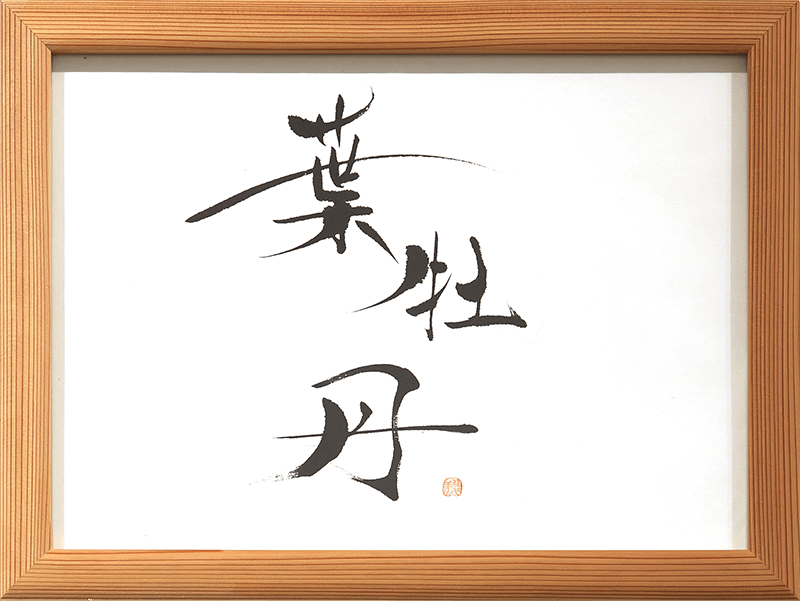 葉牡丹